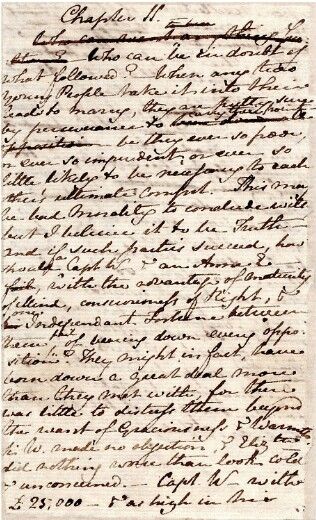 Chapter 11.
Who can be in doubt of
what followed? When any two
Young People take it into their
heads to marry, they are pretty sure
by perseverance to
be they ever so poor,
or ever so imprudent, or ever so
little likely to be necessary to each
other's ultimate comfort. This may
be bad Morality to conclude with
but I believe it to be Truth—
and if such parties succeed, how
should a Capt W— & an Anne E—
with the advantage of Maturity
of Mind, consciousness of Right, &
one Independant Fortune between
them fail of bearing down every oppo
sition? They might in fact, have
born down a great deal more
than they met with, for there
was little to distress them beyond
the want of Graciousness & Warmth.
Sir W. made no objection, & Eliz:th
did nothing worse than look cold
& unconcerned.— Capt W— with
£25,000— & as high in his